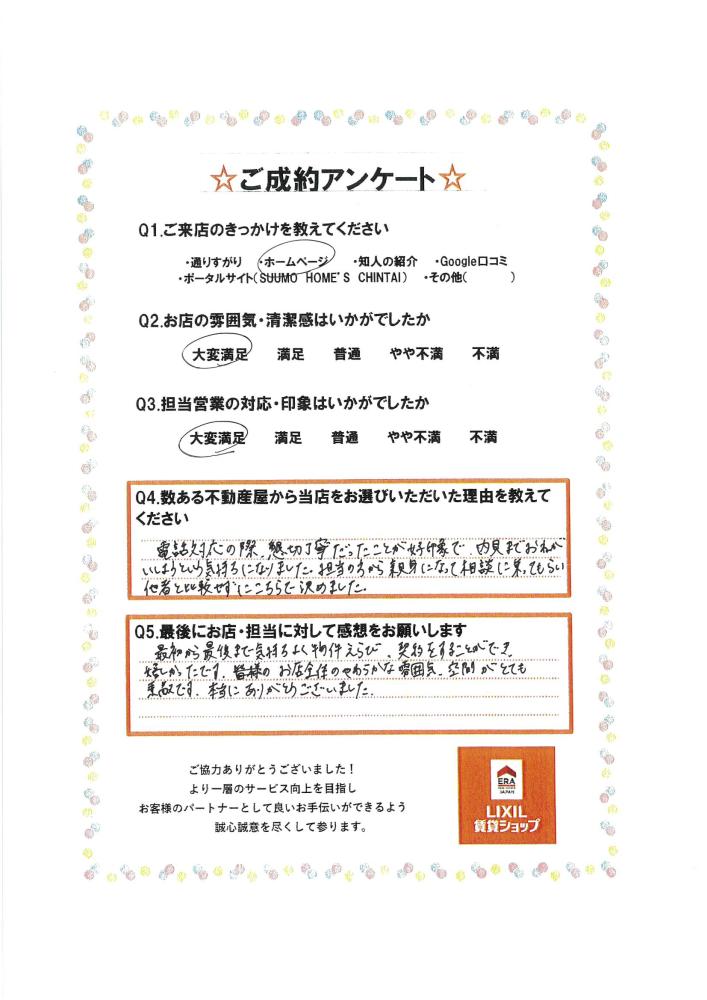 ☆ご成約アンケート☆
Q1.ご来店のきっかけを教えてください
・通りすがり ・ホームページ ・知人の紹介 ・Google口コミ
・ポータルサイト(SUUMO HOME'S CHINTAI) ・その他( )
Q2.お店の雰囲気・清潔感はいかがでしたか
大変満足 満足 普通 やや不満 不満
Q3.担当営業の対応・印象はいかがでしたか
大変満足 満足 普通 やや不満 不満
Q4.数ある不動産屋から当店をお選びいただいた理由を教えて
ください
電話対応の際、懇切丁寧だったことが好印象で、内見までおねがい
いしようという気持ちになりました。担当の方から親身になって相談に乗ってもらい
他者と比較せずにこちらで決めました。
Q5.最後にお店・担当に対して感想をお願いします
最初から最後まで気持ちよく物件えらび、契約をすることができ
嬉しかったです。皆様のお店全体のやわらかな雰囲気、空間がとても
素敵です。本当にありがとうございました。
ご協力ありがとうございました！
より一層のサービス向上を目指し
お客様のパートナーとして良いお手伝いができるよう
誠心誠意を尽くして参ります。
ERA
JAPAN
LIXIL
賃貸ショップ